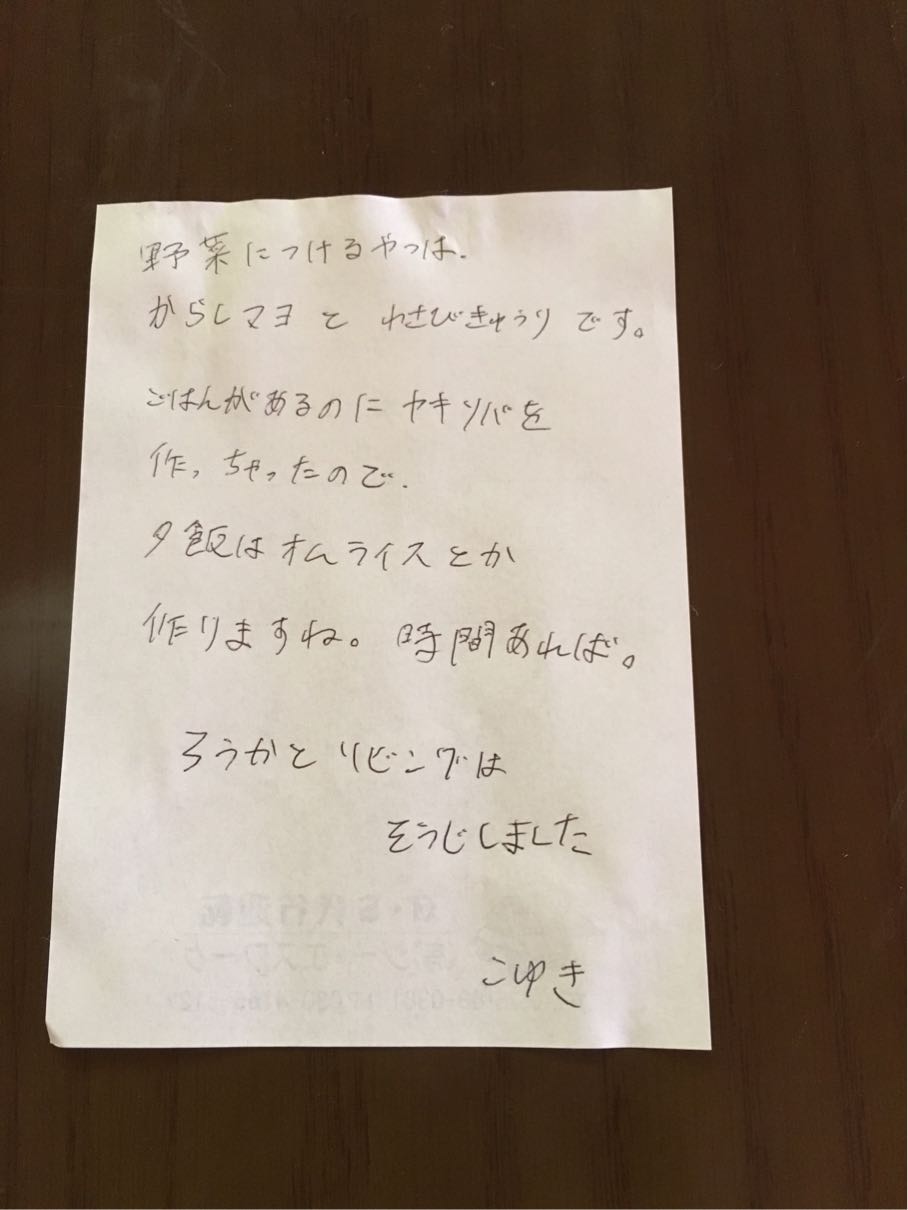 野菜につけるやつは.
からしマヨと わさびきゅうりです。
ごはんがあるのに ヤキソバを
作っちゃったので.
夕飯はオムライスとか
作りますね。時間あれば。
ろうかと リビングは
そうじしました
こゆき